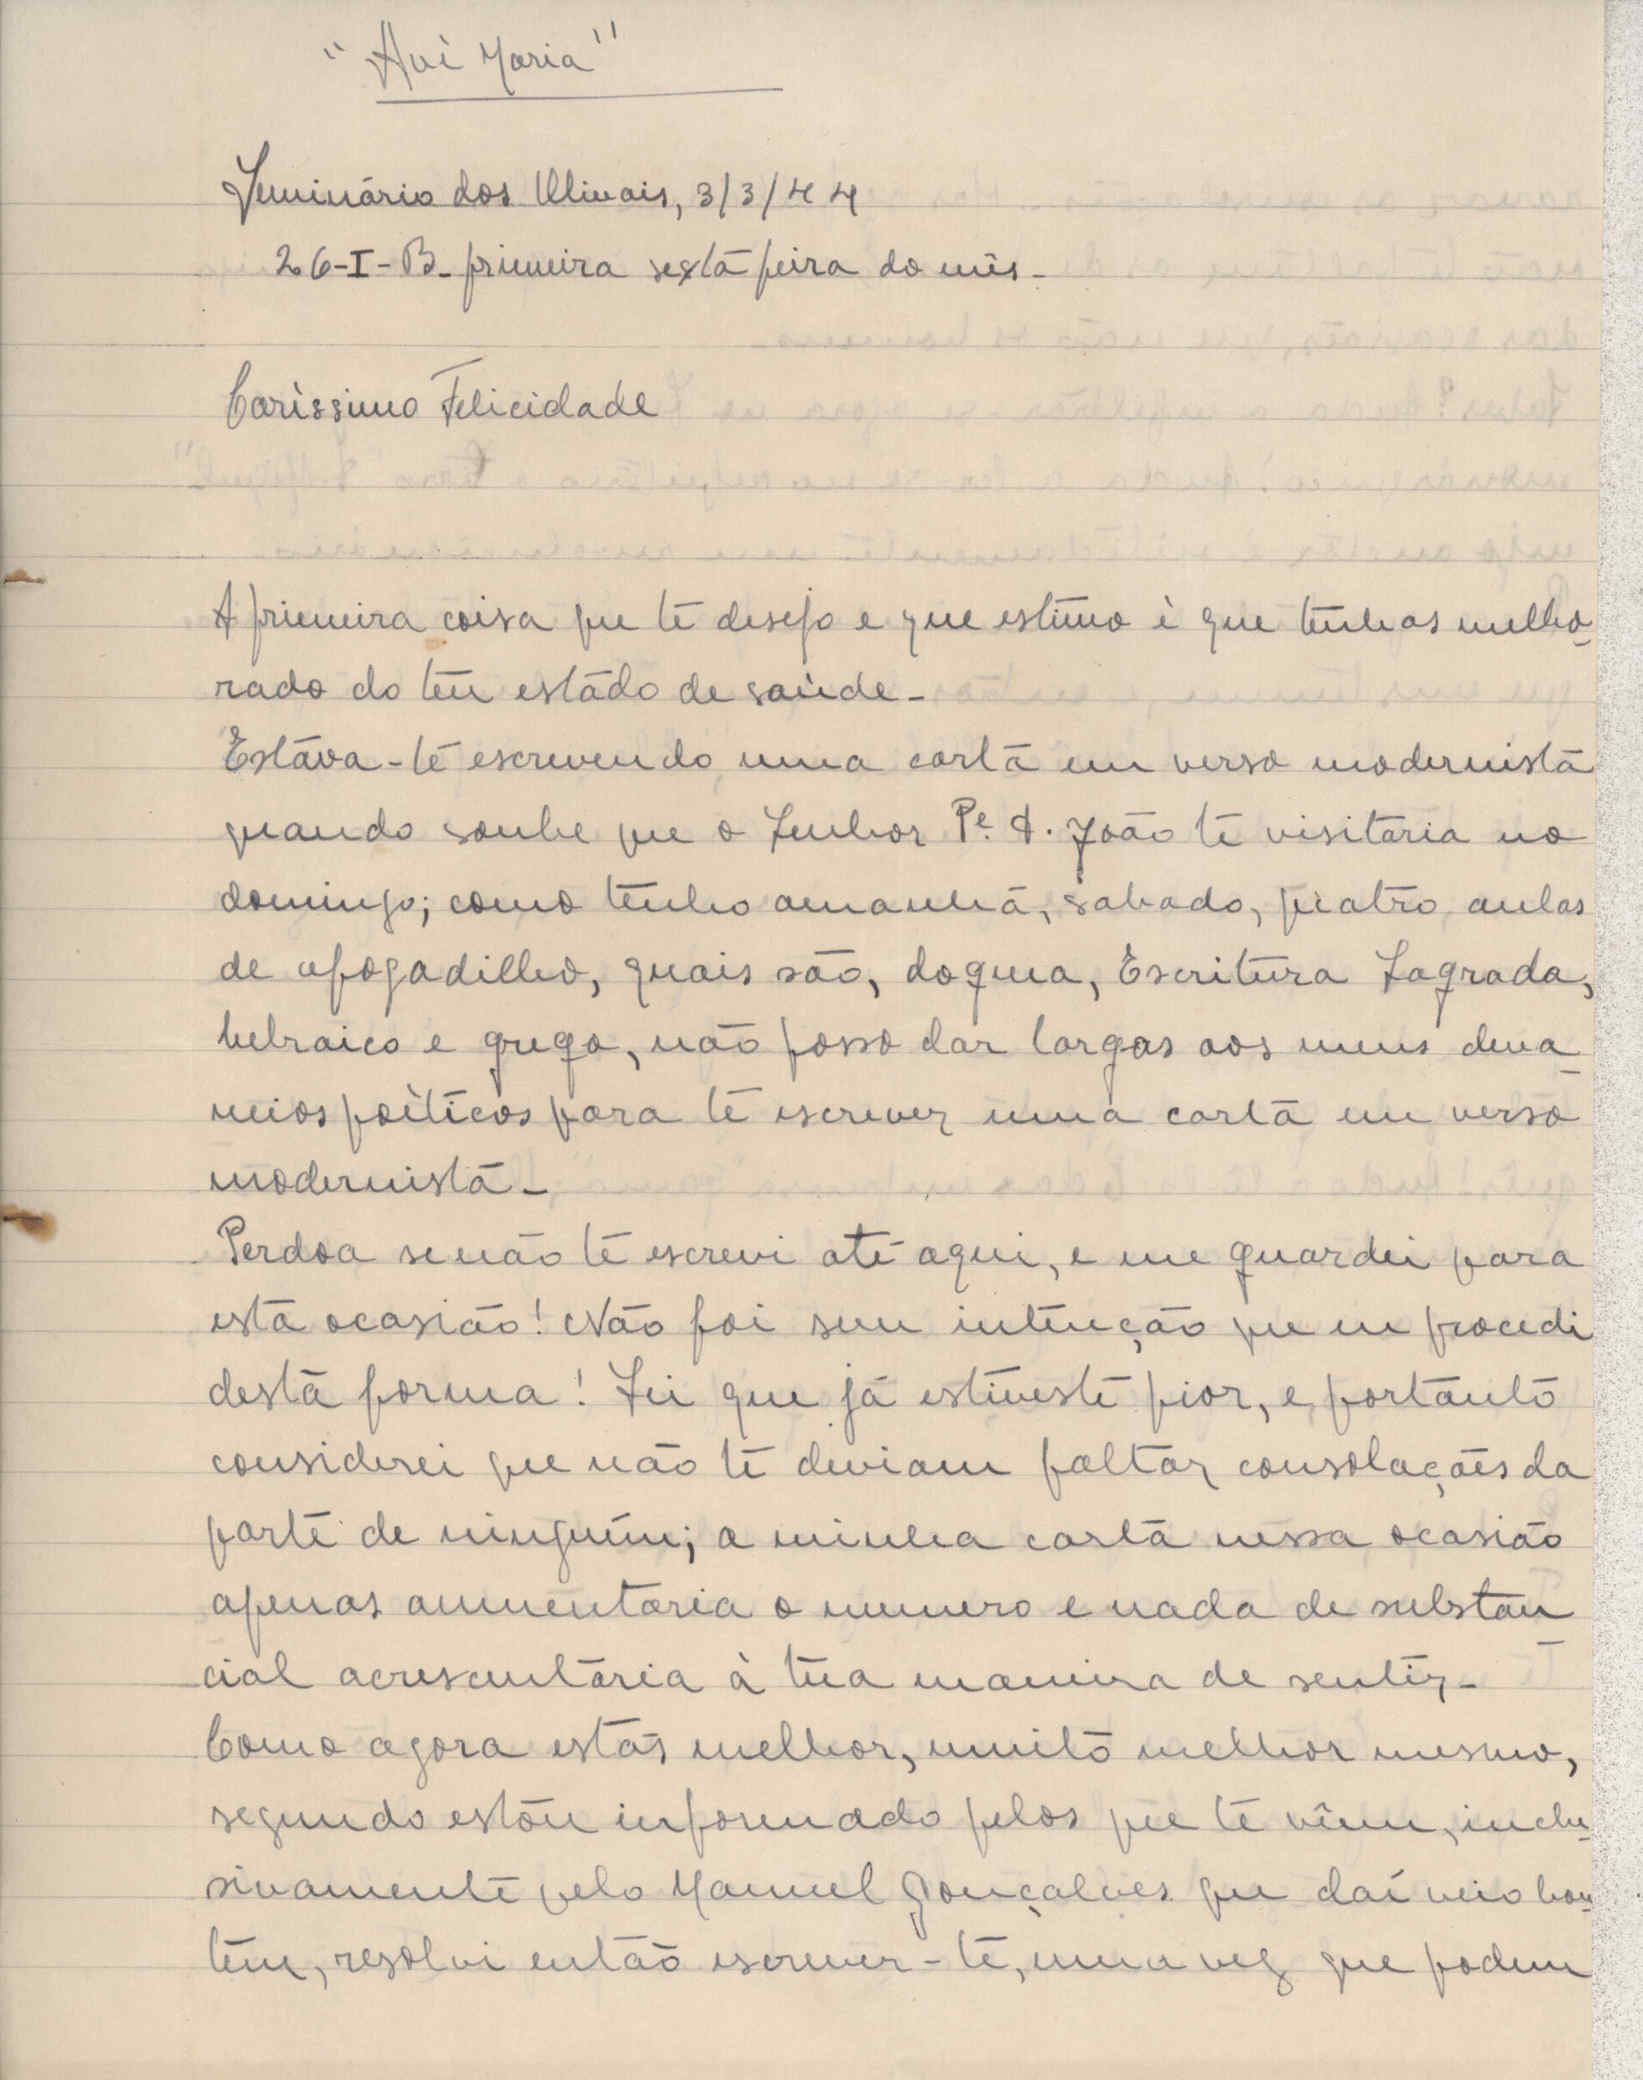 "Avè Maria"
Seminário dos Olivais, 3/3/44
26-I-B- primeira sextã feira do mês-
Caríssimo Felicidade
A primeira coisa que te desejo e que estimo è que tenhas melho-
rado do teu estado de saùde-
Estava-te escrevendo uma carta em verso modernista
quando soube que o Senhor Pe. A. João te visitaria no
domingo; como tenho amanhã, sabado, quatro aulas
de afogadilho, quais são, dogma, Escritura Sagrada,
hebraico e grego, não posso dar largas aos meus deva-
neios poèticos para te escrever uma carta em verso
modernista-
Perdoa se não te escrevi atè aqui, e me guardei para
esta ocasião! Não foi sem intenção que eu procedi
desta forma! Sei que já estiveste pior, e, portanto
considerei que não te deviam faltar consolações da
parte de ninguém; a minha carta nessa ocasião
apenas aumentaria o numero e nada de substan
cial acrescentaria à tua maneira de sentir-
Como agora estás melhor, muito melhor mesmo,
segundo estou informado pelos que te vêem, inclu-
sivamente pelo Manuel Gonçalves que daí veio hon-
tem, resolvi então escrever-te, uma vez que podem